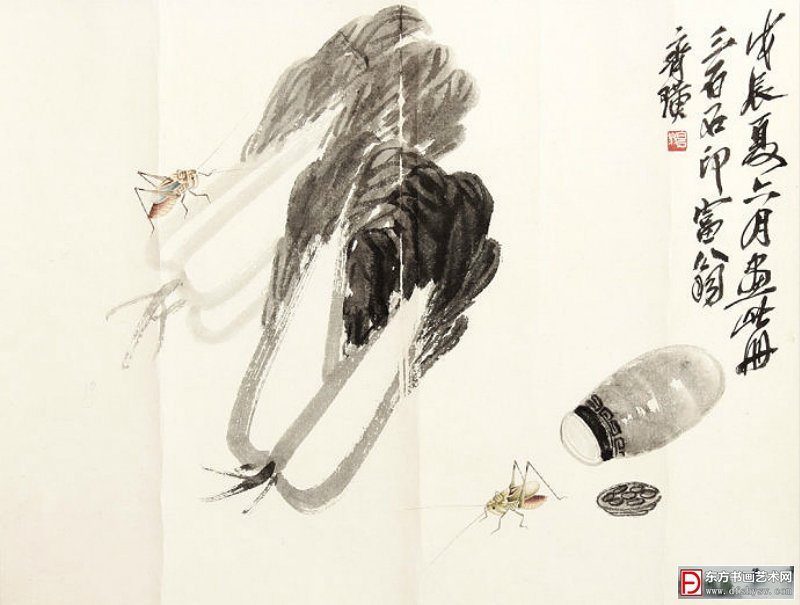 戊辰夏六月画此册
三百石印富翁
齐璜
东方书画艺术网
www.dfshysw.com